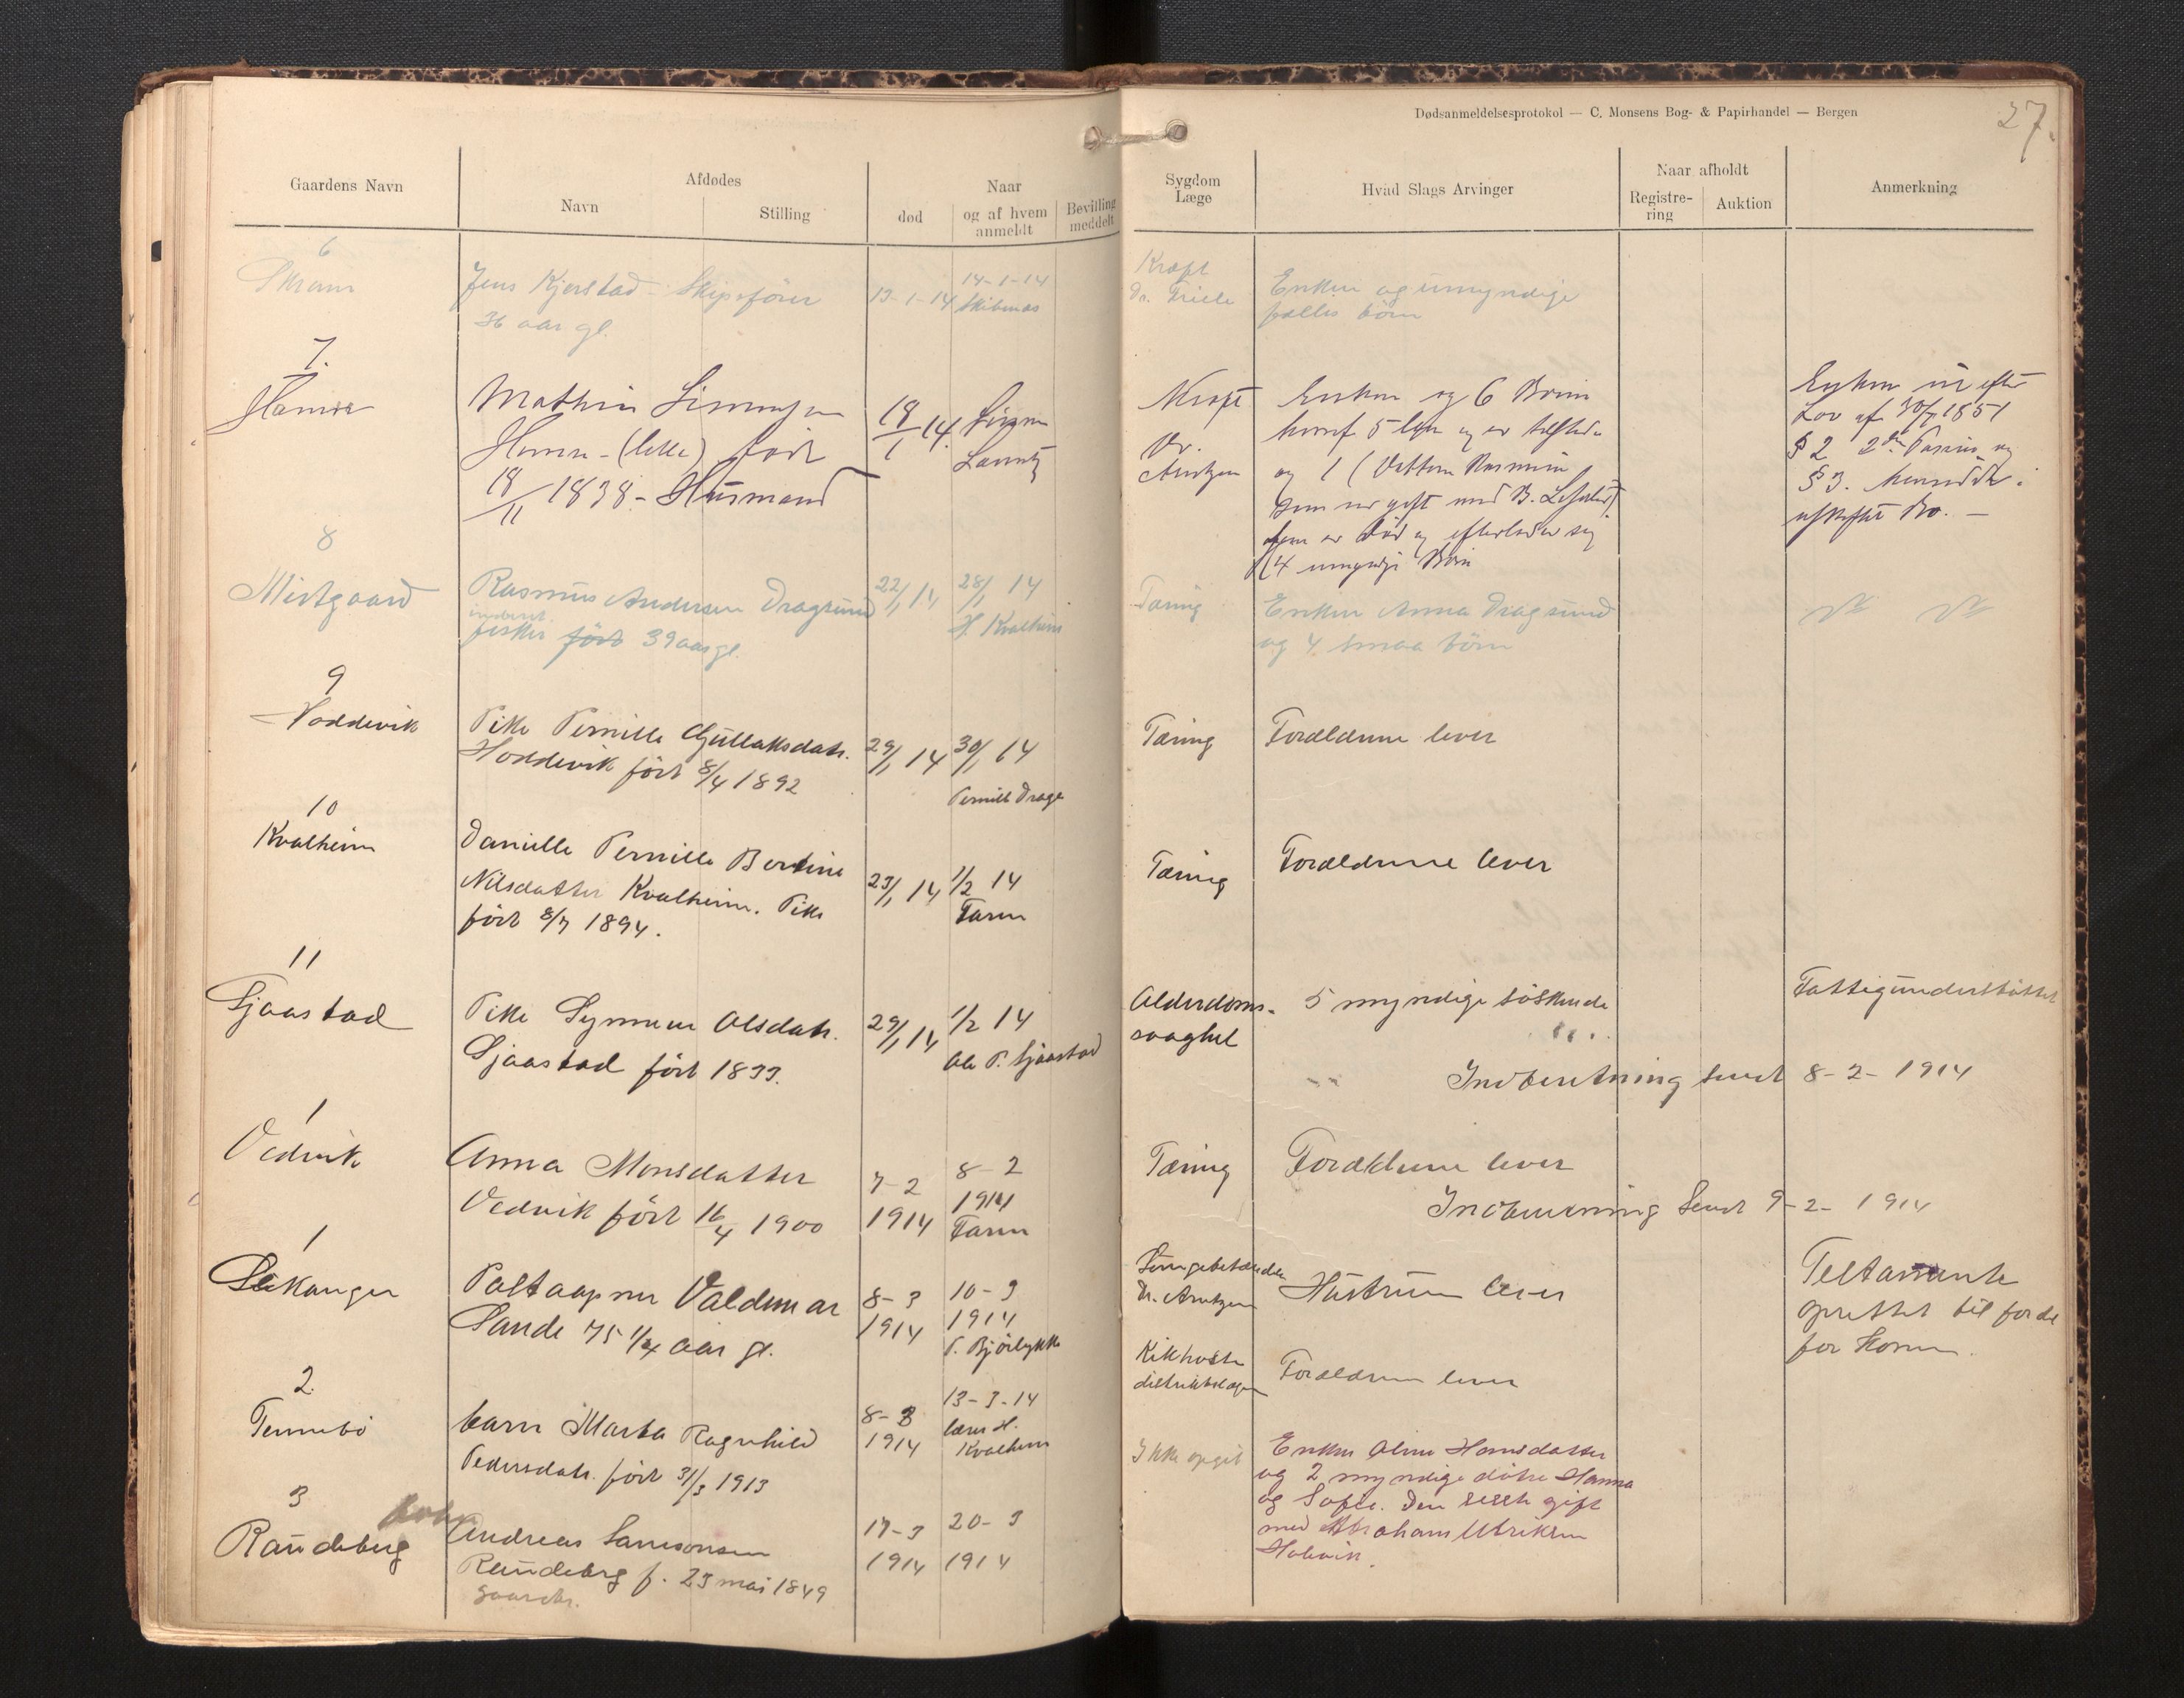 Dødsanmeldelsesprotokol — C. Monsens Bog- & Papirhandel — Bergen
27.
Gaardens Navn
Afdødes
Navn
Stilling
død
Naar
og af hvem
anmeldt
Bevilling
meddelt
Sygdom
Læge
Hvad Slags Arvinger
Naar afholdt
Registre-
ring
Auktion
Anmerkning
6
Jens Kjerstad - Skipsfører
36 aar gl.
13-1-14
14-1-14
Kræft
Dr.
Enken og umyndige
fælles børn
7.
Mathias Simonsen
(lille) født
18/11 1838 - Husmand
18/1 14.
Kræft
Dr.
Arntzen
Enken og 6 Børn
hvoraf 5 og er tilstede
og 1 (Datteren Rasmine
som var gift med B.
som er død og efterlader sig
4 umyndige Børn
efter
Lov af 30/7 1851
§ 2 2det og
§ 3.
uskiftet Bo. -
8
Midtgaard
Rasmus Andersen Dragsund
inderst
fisker født 39 aar gl.
22/1 14
28/1 14
H Kvalheim
Tæring
Enken Anna Dragsund
og 4 smaa børn
9
Hoddevik
Pike Pernille Gullaksdatr.
Hoddevik født 8/4 1892
29/1 14
30/1 14
Pernille Drage
Tæring
Forældrene lever
10
Kvalheim
Danielle Pernille Bertine
Nilsdatter Kvalheim. Pike
født 8/7 1894.
23/1 14
1/2 14
Faren
Tæring
Forældrene lever
11
Sjaastad
Pike Synneve Olsdatr.
Sjaastad født 1833.
29/1 14
1/2 14
Ole P. Sjaastad
Alderdoms-
svaghet
5 myndige søskende
Fattigunderstøttet
Indberetning sendt 8-2-1914
1
Vedvik
Anna Monsdatter
Vedvik født 16/4 1900
7-2
1914
8-2
1914
Faren
Tæring
Forældrene lever
Indberetning Sendt 9-2-1914
1
Leikanger
Postaapner Valdemar
Sande 75 1/4 aar gl.
8-3
1914
10-3
1914
P. Bjørlykke
Lungebetændelse
Dr. Arntzen
Hustruen lever
Testamente
oprettet til fordel
for Konen.
2.
Tennebø
barn Marta Ragnhild
Pedersdatr. født 31/3 1913
8-3
1914
13-3-14
lærer H.
Kvalheim
Kikhoste
distriktslægen
Forældrene lever
3
Raudeberg
Andreas Samsonsen
Raudeberg f. 23 mai 1849
gaardbr.
17-3
1914
20-3
1914
Ikke opgit
Enken Oline Hansdatter
og 2 myndige døtre Hanna
og Sofie. Den sidste gift
med Abraham Ulriksen
Halvik.